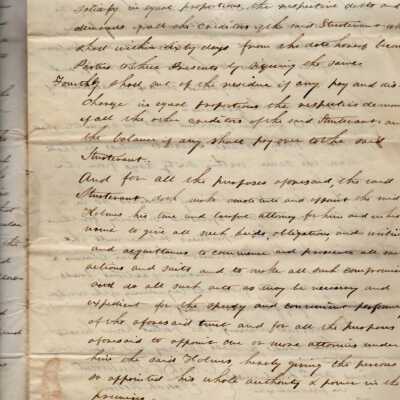 satisfy in equal proportions, the respective debts and
demands of all the creditors of the said Sturtevant, who
shall within sixty days from the date hereof become
Parties to these Presents by signing the same.
Fourthly shall out of the residue if any pay and dis-
charge in equal proportions the respective demands
of all the other creditors of the said Sturtevant and
the balance if any, shall pay over to the said
Sturtevant.
And for all the purposes aforesaid, the said
Sturtevant doth make constitute and appoint the said
Holmes his true and lawful attorney for him and in his
name to give all such deeds, obligations, and writings
and acquittances to commence and prosecute all such
actions and suits and to make all such compromises
and do all such acts as may be necessary and
expedient for the speedy and convenient performance
of the aforesaid trust, and for all the purposes
aforesaid to appoint one or more attornies under
him the said Holmes, hereby giving the persons
so appointed his whole authority & power in the
premises.